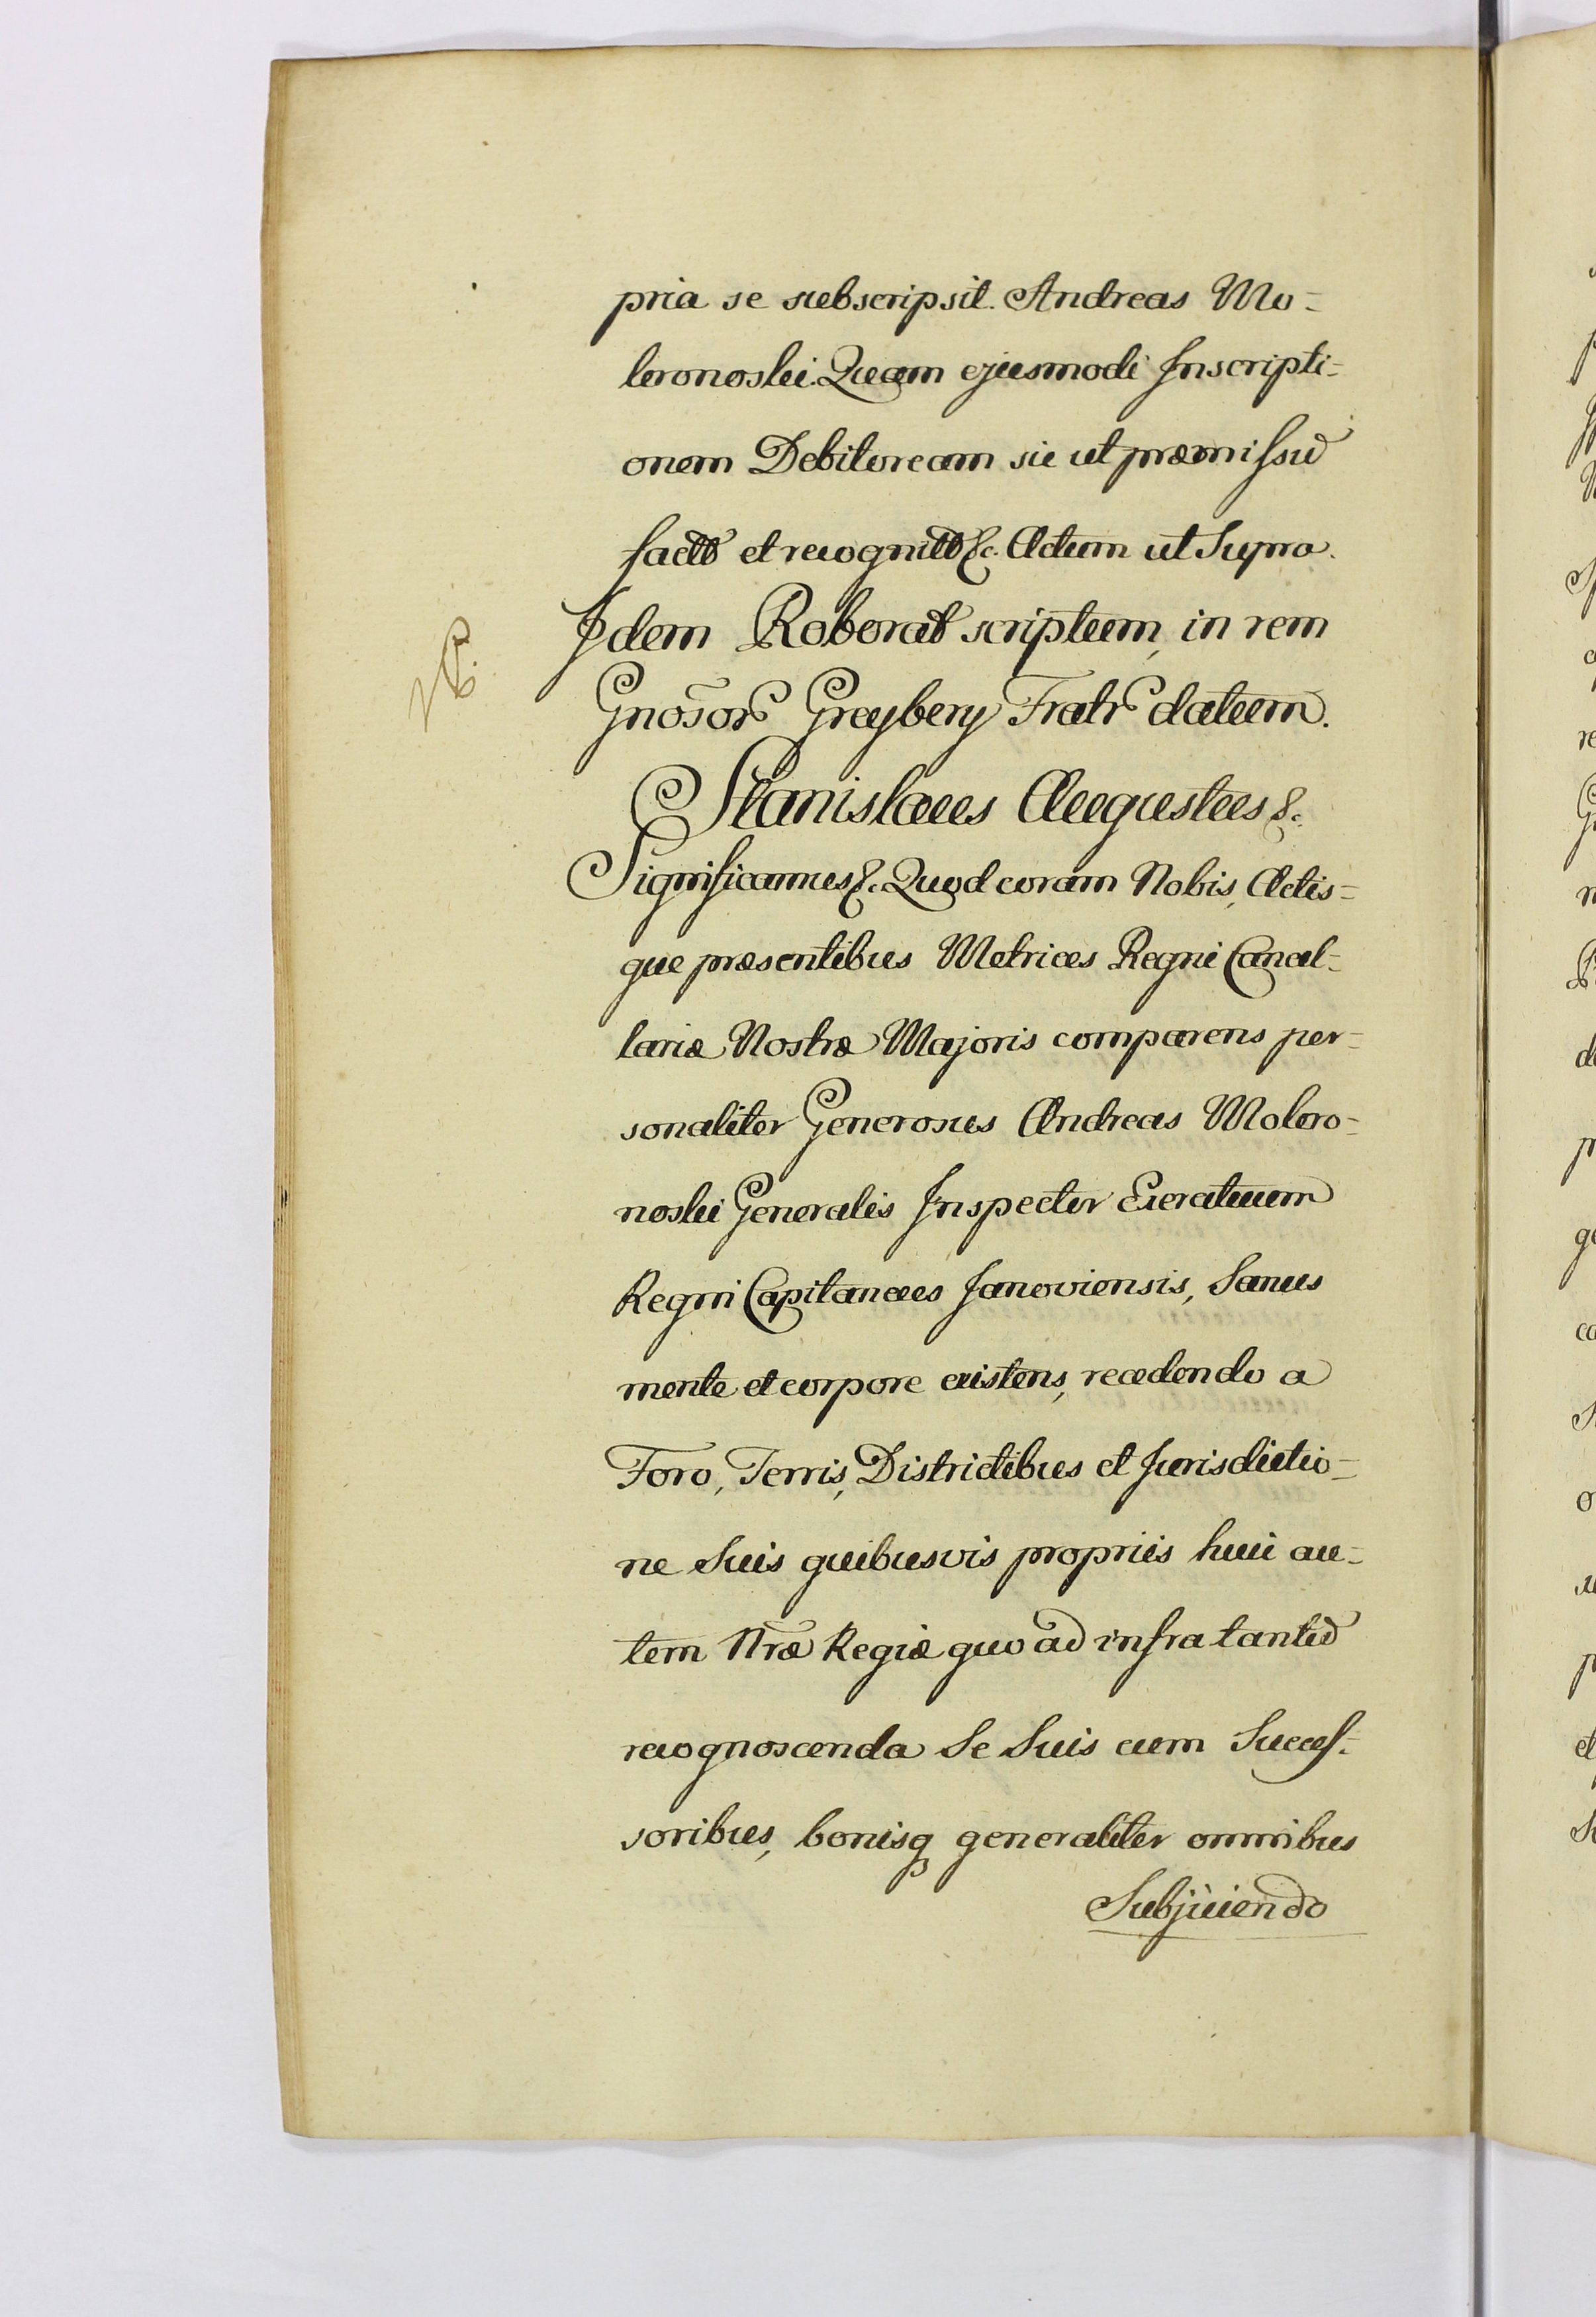 pria se subscripsit. Andreas Mo-
kronoski. Quam ejusmodi Inscripti-
onem Debitoream sic ut præmissũ
factã et recognitã &c. Actum ut Supra.
Idem Roborat scriptum, in rem
Gnõsor Greybery Fratr datum.
Stanislaus Augustus &c.
Significamus &c. Quod coram Nobis, Actis-
que præsentibus Metrices Regni Cancel-
lariæ Nostræ Majoris comparens per-
sonaliter Generosus Andreas Mokro-
noski Generalis Inspector Exercituum
Regni Capitaneus Janoviensis, Sanus
mente et corpore existens, recedendo a
Foro, Terris, Districtibus et Jurisdictio-
ne Suis quibusvis propriis huic au-
tem Nrã Regiæ quo ad infra tantũ
recognoscenda Se Suis cum Succes-
soribus, bonisq generaliter omnibus
Subjiciendo